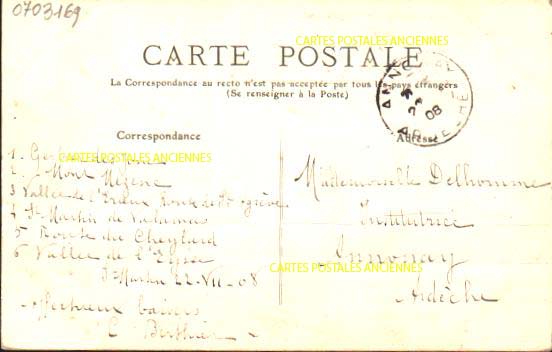 0703169
CARTES POSTALES ANCIENNES
CARTE POSTALE
La Correspondance au recto n'est pas acceptée par tous les pays étrangers
(Se renseigner à la Poste)
ANNONAY
08
ARDECHE
Correspondance
Adresse
CARTES POSTALES ANCIENNES
1. Gerbier des Joncs
2. Mont Mézenc
3 Vallée de l'Erieux Route de St Agrève
4 St Martin de Valamas
5 Route du Cheylard
6 Vallée de l'
St Martin 22-VII-08
Affectueux baisers
C Berthier
Mademoiselle Delhomme
Institutrice
Annonay
Ardèche
CARTES POSTALES ANCIENNES